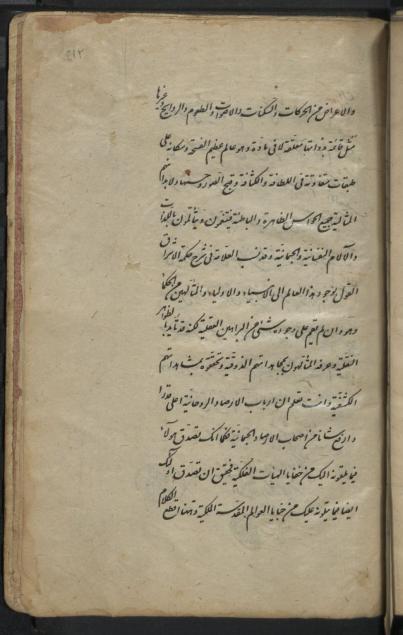 ٥١٢
والاعراض من الحركات والسكنات والاصوات والطعوم والروايح وغيرها
مثل قائمة بذواتها معلقة لا فى مادة وهو عالم عظيم الفسحة وسكانه على
طبقات متفاوتة فى اللطافة والكثافة وقبح الصور وحسنها ولابدانهم
المثالية جميع الحواس الظاهرة والباطنة فيتنعمون ويتألمون باللذات
والآلام النفسانية والجسمانية وقد نسب العلامة فى شرح حكمة الاشراق
القول بوجود هذا العالم الى الانبياء والاولياء والمتألهين من الحكماء
وهو وان لم يقم على وجوده شئ من البراهين العقلية لكنه قد تأيد بالظواهر
النقلية وعرفه المتألهون بمجاهداتهم الذوقية وتحققوه بمشاهداتهم
الكشفية وانت تعلم ان ارباب الارصاد الروحانية اعلى قدرا
وارفع شانا من اصحاب الارصاد الجسمانية فكما انك تصدق هؤلاء
فيما يلقونه اليك من خفايا الهيئات الفلكية فحقيق ان تصدق اولئك
ايضا فيما يتلونه عليك من خبايا العوالم المقدسة الملكية وههنا قطع الكلام